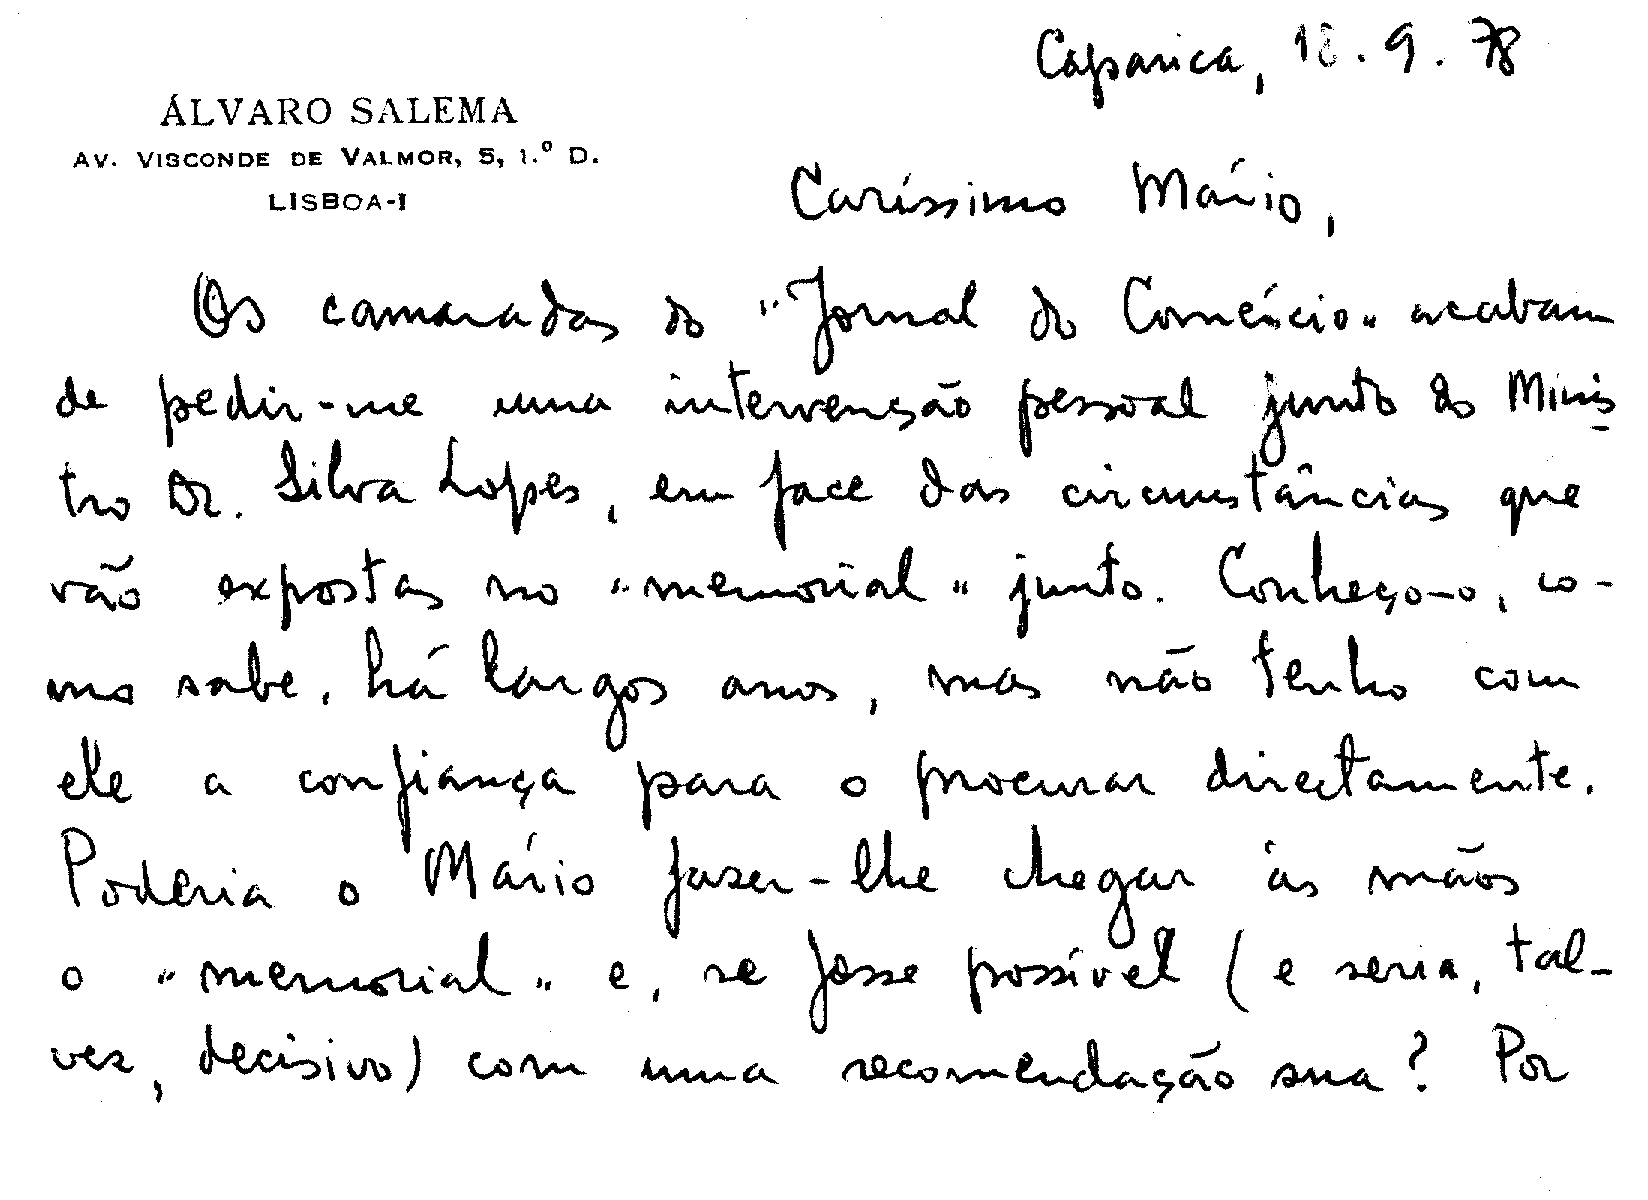 Caparica, 18.9.78
ÁLVARO SALEMA
AV. VISCONDE DE VALMOR, 5, 1.º D.
LISBOA-1
Caríssimo Mário,
Os camaradas do "Jornal do Comércio" acabam
de pedir-me uma intervenção pessoal junto do Minis-
tro Dr. Silva Lopes, em face das circunstâncias que
vão expostas no "memorial" junto. Conheço-o, co-
mo sabe, há largos anos, mas não tenho com
ele a confiança para o procurar directamente.
Poderia o Mário fazer-lhe chegar às mãos
o "memorial" e, se fosse possível (e seria, tal-
vez, decisivo) com uma recomendação sua? Por